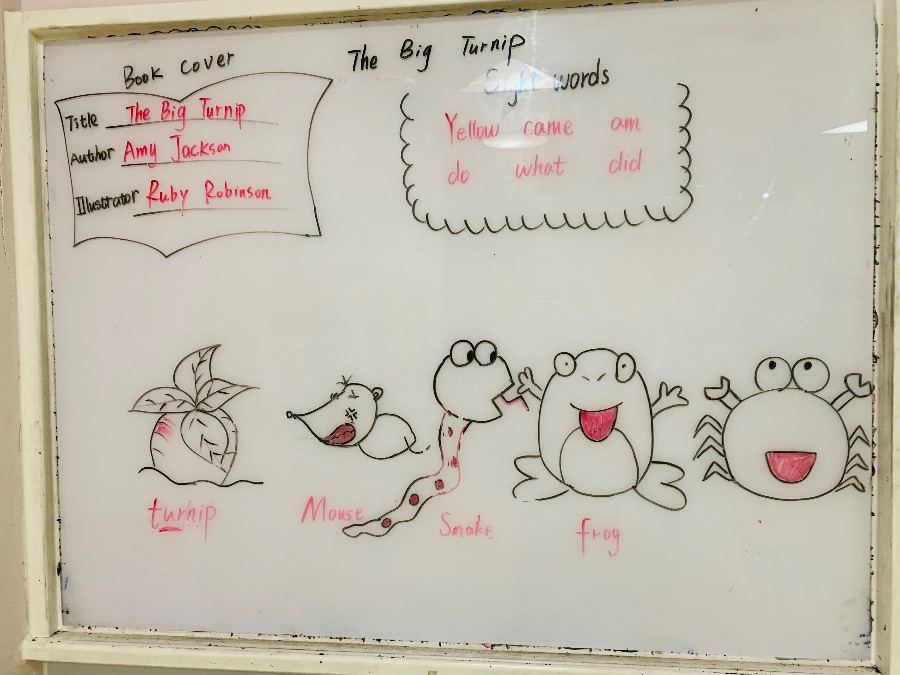 The Big Turnip
Book cover
Title The Big Turnip
Author Amy Jackson
Illustrator Ruby Robinson
Sight words
Yellow came am
do what did
turnip
Mouse
Snake
frog